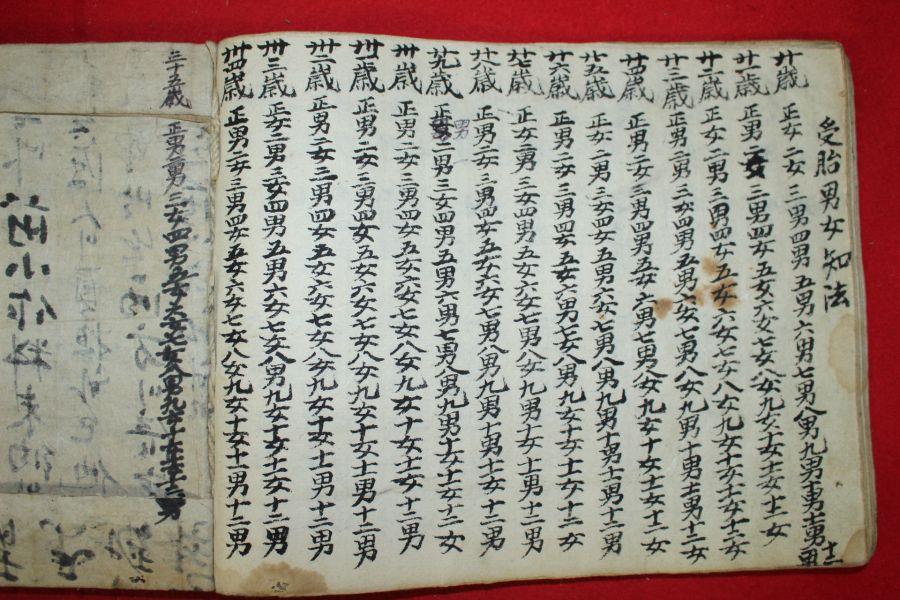 受胎男女知法
廿歲 正女二女三男四男五男六男七男八男九男十男十一男十二男
廿一歲 正男二女三男四女五女六女七女八女九女十女十一女十二女
廿二歲 正女二男三男四女五女六女七女八女九女十女十一女十二女
廿三歲 正男二男三女四女五男六女七男八女九男十男十一男十二女
廿四歲 正男二女三男四男五女六男七男八女九女十女十一女十二女
廿五歲 正女二男三女四女五男六女七男八男九男十男十一男十二男
廿六歲 正男二女三男四女五女六男七女八男九女十女十一女十二女
廿七歲 正女二男三女四男五女六女七男八女九男十女十一男十二男
廿八歲 正男二女三男四女五女六女七男八男九男十男十一男十二男
廿九歲 正男二男三女四男五男六男七男八男九男十女十一女十二女
卅歲 正男二女三男四女五女六女七女八女九女十女十一女十二男
卅一歲 正男二女三男四女五女六女七女八女九女十女十一男十二男
卅二歲 正男二女三男四女五女六女七女八女九女十女十一男十二男
卅三歲 正女二男三女四男五男六女七女八男九女十女十一女十二男
卅四歲 正男二女三男四女五女六女七女八女九女十女十一男十二男
三十五歲 正男二男三女四男五女六女七女八男九女十女十一女十二男